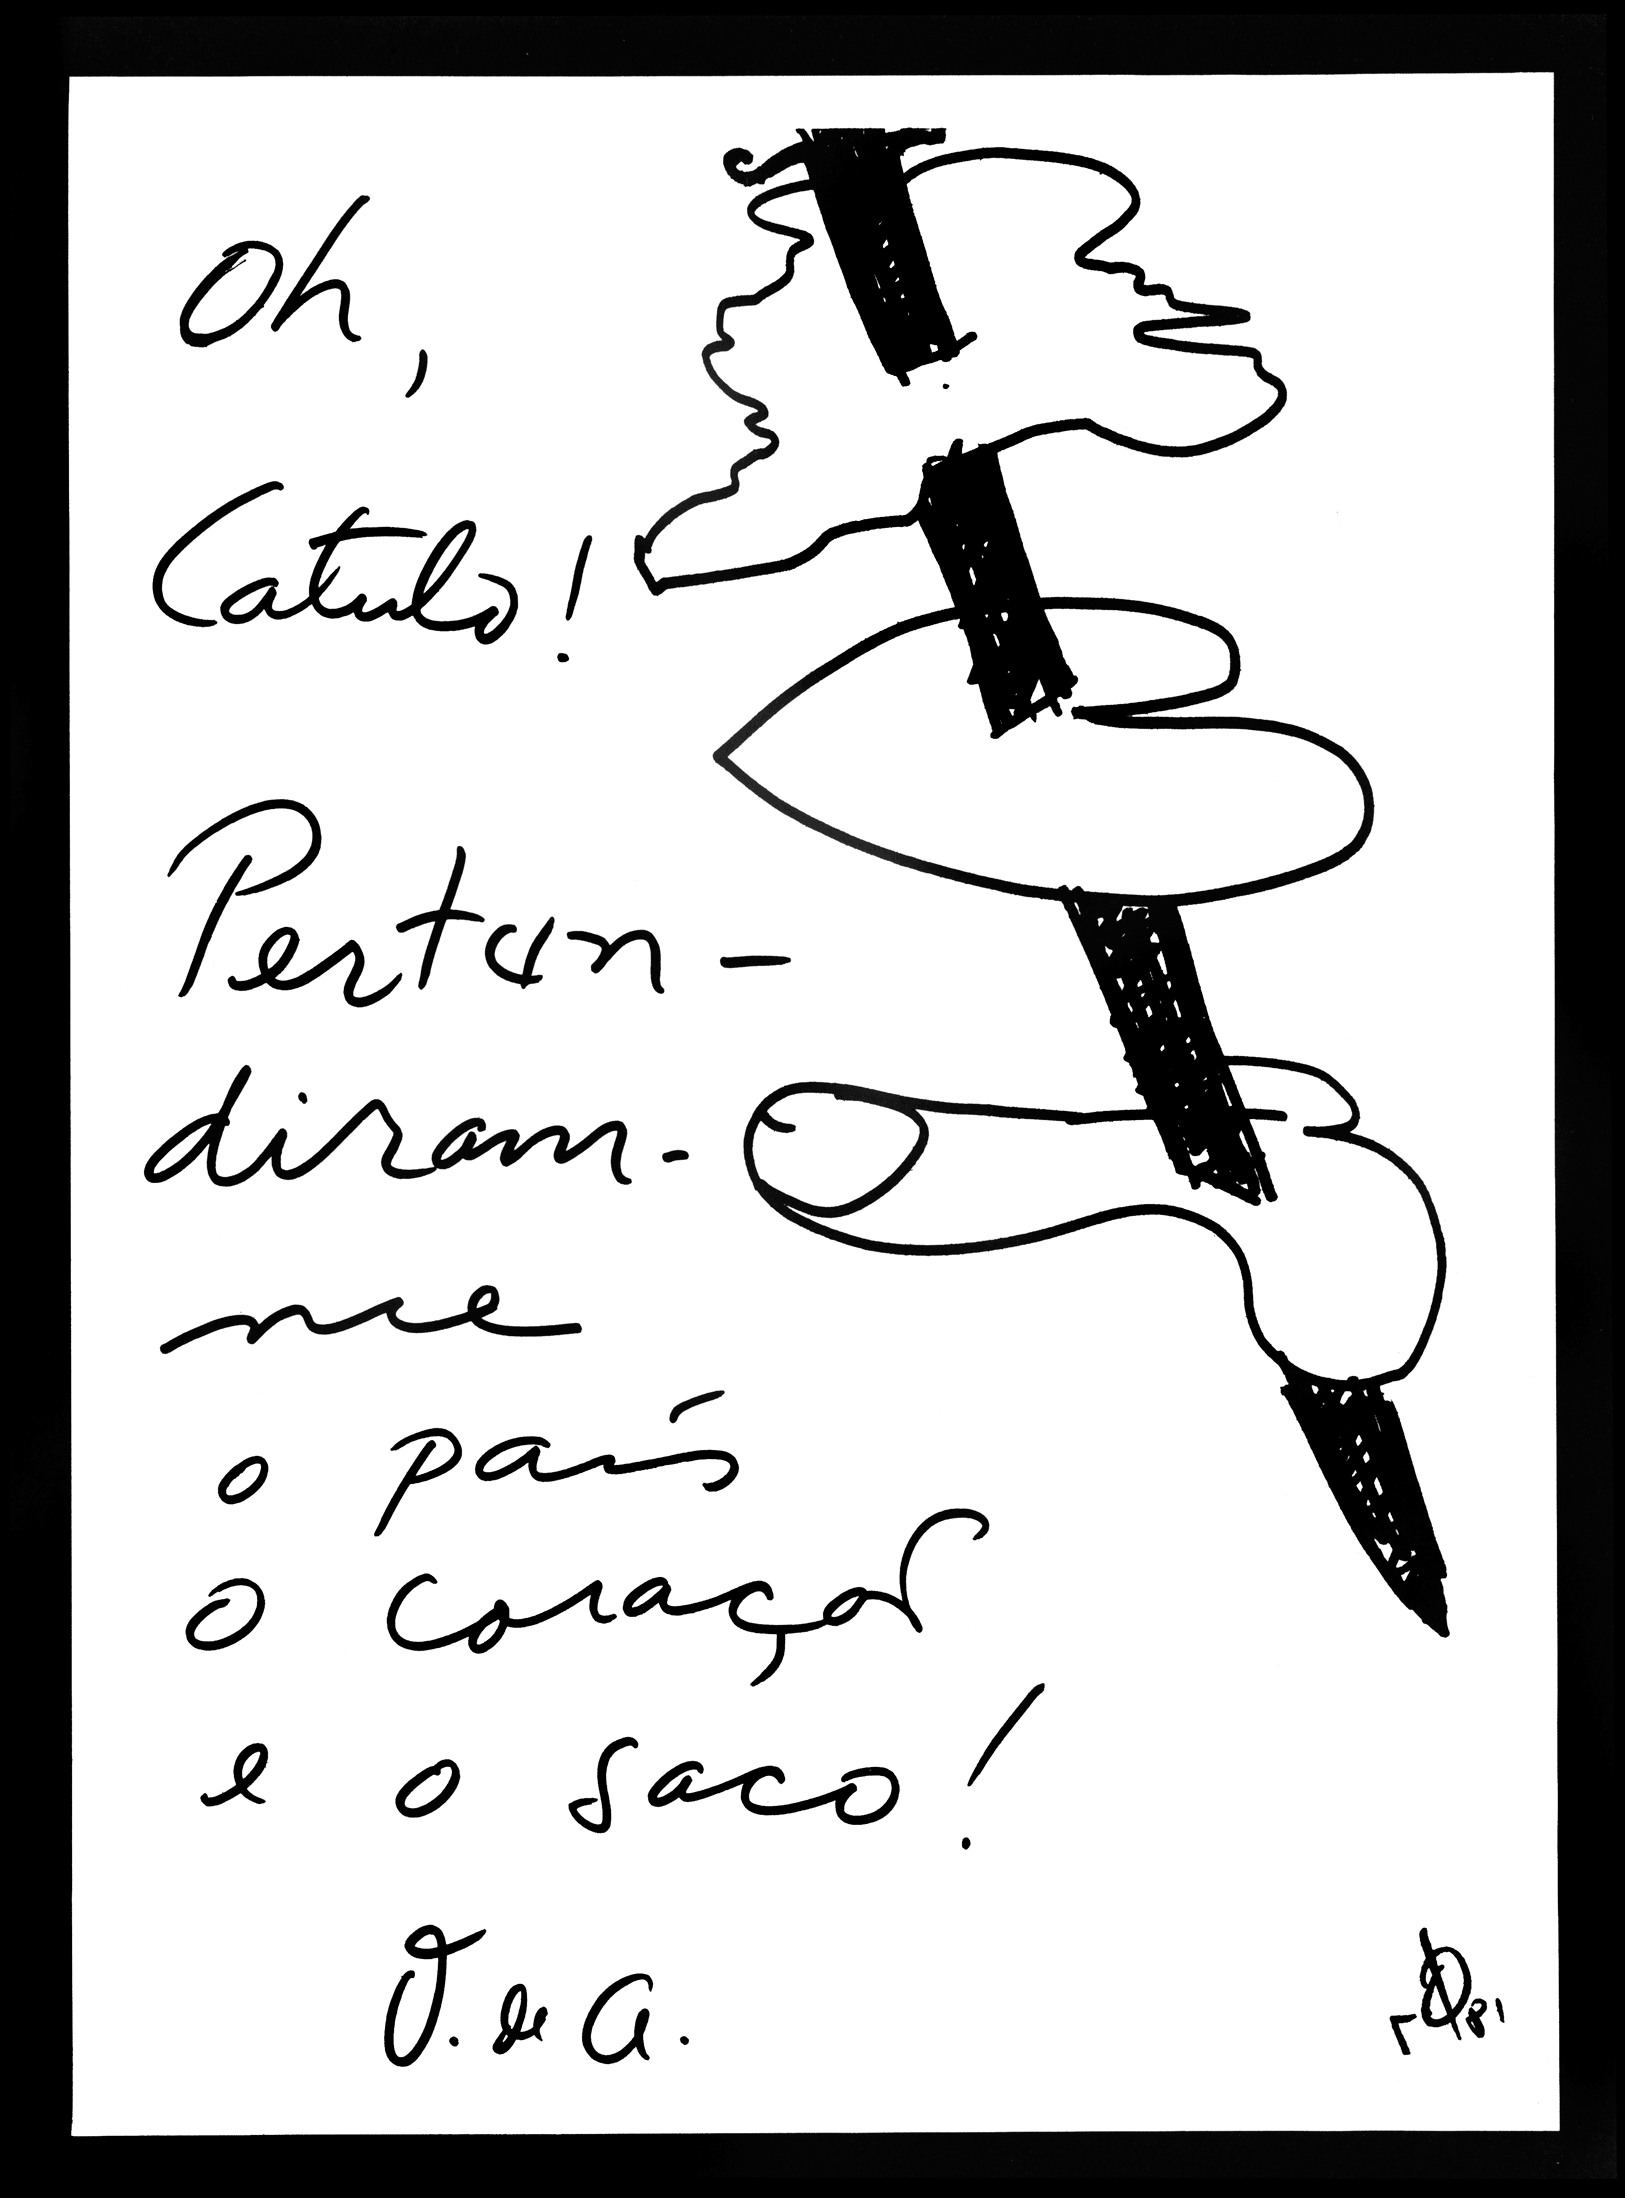 Oh,
Catulo!
Pertun-
diram-
me
o país
o coração
e o saco!
O. de A.
81